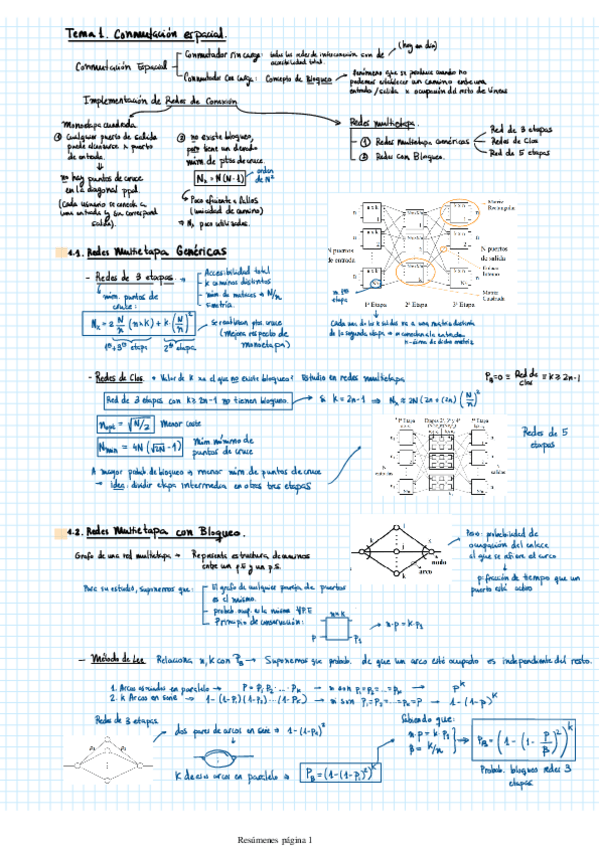 Tema 1. Conmutación espacial.
Conmutación Espacial
Conmutador sin carga: todas las redes de interconexión con de accesibilidad total. (hoy en día)
Conmutador con carga: Concepto de Bloqueo
Fenómeno que se produce cuando no
podemos establecer un camino entre una
entrada/salida x ocupación del resto de líneas
Implementación de Redes de Conexión
Monoetapa cuadrada
① Cualquier puerto de salida
puede alcanzarse x puerto
de entrada.
no hay puntos de cruce
en la diagonal ppal.
(Cada usuario se conecta a
una entrada y su correspond
salida).
② no existe bloqueo,
pero tiene un elevado
núm. de ptos de cruce.
Nx = N(N-1)
orden
de N²
Poco eficiente a fallos
(unicidad de camino)
→ Nx poco utilizados.
Redes multietapa.
① Redes multietapa genéricas
② Redes con Bloqueo.
Red de 3 etapas
Redes de Clos
Red de 5 etapas
4.1. Redes Multietapa Genéricas
- Redes de 3 etapas. →
Accesibilidad total
k caminos distintos
núm de matrices → N/n
simetría.
núm. puntos de
cruce:
Nx = 2 N/n (n×k) + k (N/n)²
1ª+3ª etapa
2ª etapa.
Se reutilizan pto. cruce
(mejora respecto de
monoetapa)
Matriz
Rectangular
N puertos
de entrada
N puertos
de salida
Enlace
Interno
Matriz
Cuadrada
1ª Etapa
2ª Etapa
3ª Etapa
Cada una de las k salidas va a una matriz distinta
de la segunda etapa
- Redes de Clos. • Valor de k xa el que no existe bloqueo? Estudio en redes multietapa
PB=0 ≡ Red de Clos ≡ k ≥ 2n-1
Red de 3 etapas con k ≥ 2n-1 no tienen bloqueo.
Si k = 2n-1 ⇒
nopt = √N/2
Menor coste
Nmin = 4N (√2N - 1)
Núm mínimo de
puntos de cruce
A mayor probab de bloqueo → menor núm. de puntos de cruce
→ idea: dividir etapa intermedia en otras tres etapas
Redes de 5
etapas
4.2. Redes Multietapa con Bloqueo.
Grafo de una red multietapa → Representa estructura de caminos
entre un p.E y un p.S.
nodo
arco
Peso: probabilidad de
ocupación del enlace
al que se refiere el arco
p: fracción de tiempo que un
puerto está activo
Para su estudio, suponemos que:
El grafo de cualquier pareja de puertos
es el mismo.
probab. ocup. es la misma ∀P.E
Principio de conservación:
n×k
→ n·p = k·p₁
- Método de Lee. Relaciona n, k con PB → Suponemos que probab. de que un arco esté ocupado es independiente del resto.
1. Arcos espaciados en paralelo → P = P₁ P₂ ... Pk → si son P₁=P₂=...=Pk → P^k
2. k Arcos en serie → 1-(1-P₁)(1-P₂)...(1-Pk) → si son P₁=P₂=...=P → 1-(1-P)^k
Redes de 3 etapas
→ dos pares de arcos en serie → 1-(1-P₁)²
K de esos arcos en paralelo → PB = (1-(1-P₁)²)^k
Sabiendo que:
n·p = k P₁
β = k/n
PB = (1-(1-p/β)²)^k
Probab. bloqueo redes 3
etapas
Resúmenes página 1